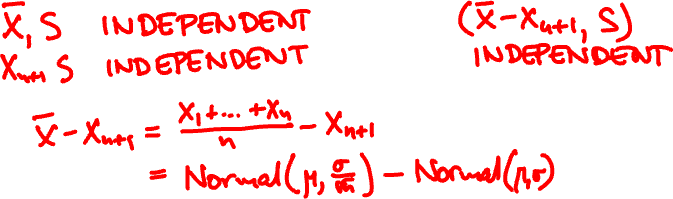 X̄, S INDEPENDENT (X̄ - Xₙ₊₁, S)
Xₙ₊₁ S INDEPENDENT INDEPENDENT
X̄ - Xₙ₊₁ = (X₁ + ... + Xₙ)/n - Xₙ₊₁
= Normal(μ, σ/√n) - Normal(μ, σ)